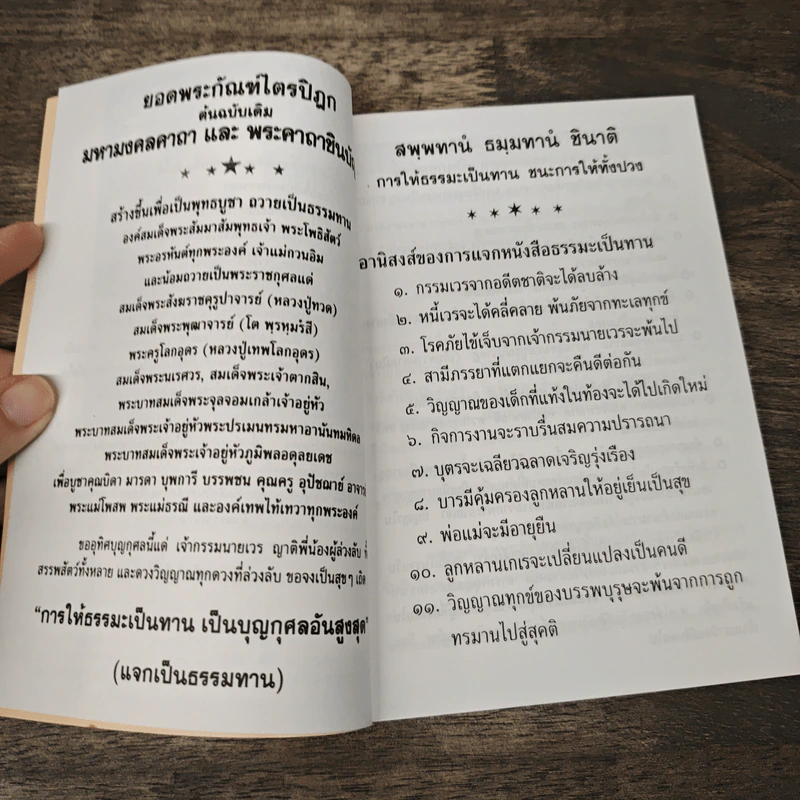 ยอดพระกัณฑ์ไตรปิฎก
ต้นฉบับเดิม
มหามงคลคาถา และ พระคาถาชินบัญ
สร้างขึ้นเพื่อเป็นพุทธบูชา ถวายเป็นธรรมทาน
องค์สมเด็จพระสัมมาสัมพุทธเจ้า พระโพธิสัตว์
พระอรหันต์ทุกพระองค์ เจ้าแม่กวนอิม
และน้อมถวายเป็นพระราชกุศลแด่
สมเด็จพระสังฆราชคูรูปาจารย์ (หลวงปู่ทวด)
สมเด็จพระพุฒาจารย์ (โต พฺรหฺมรํสี)
พระครูโลกอุดร (หลวงปู่เทพโลกอุดร)
สมเด็จพระนเรศวร, สมเด็จพระเจ้าตากสิน,
พระบาทสมเด็จพระจุลจอมเกล้าเจ้าอยู่หัว
พระบาทสมเด็จพระเจ้าอยู่หัวพระปรเมนทรมหาอานันทมหิดล
พระบาทสมเด็จพระเจ้าอยู่หัวภูมิพลอดุลยเดช
เพื่อบูชาคุณบิดา มารดา บุพการี บรรพชน คุณครู อุปัชฌาย์ อาจารย์
พระแม่โพสพ พระแม่ธรณี และองค์เทพไท้เทวาทุกพระองค์
ขออุทิศบุญกุศลนี้แด่ เจ้ากรรมนายเวร ญาติพี่น้องผู้ล่วงลับ
สรรพสัตว์ทั้งหลาย และดวงวิญญาณทุกดวงที่ล่วงลับ ขอจงเป็นสุขๆ เถิด
“การให้ธรรมะเป็นทาน เป็นบุญกุศลอันสูงสุด”
(แจกเป็นธรรมทาน)
สพฺพทานํ ธมฺมทานํ ชินาติ
การให้ธรรมะเป็นทาน ชนะการให้ทั้งปวง
อานิสงส์ของการแจกหนังสือธรรมะเป็นทาน
๑. กรรมเวรจากอดีตชาติจะได้ลบล้าง
๒. หนี้เวรจะได้คลี่คลาย พ้นภัยจากทะเลทุกข์
๓. โรคภัยไข้เจ็บจากเจ้ากรรมนายเวรจะพ้นไป
๔. สามีภรรยาที่แตกแยกจะคืนดีต่อกัน
๕. วิญญาณของเด็กที่แท้งในท้องจะได้ไปเกิดใหม่
๖. กิจการงานจะราบรื่นสมความปรารถนา
๗. บุตรจะเฉลียวฉลาดเจริญรุ่งเรือง
๘. บารมีคุ้มครองลูกหลานให้อยู่เย็นเป็นสุข
๙. พ่อแม่จะมีอายุยืน
๑๐. ลูกหลานเกเรจะเปลี่ยนแปลงเป็นคนดี
๑๑. วิญญาณทุกข์ของบรรพบุรุษจะพ้นจากการถูก
ทรมานไปสู่สุคติ